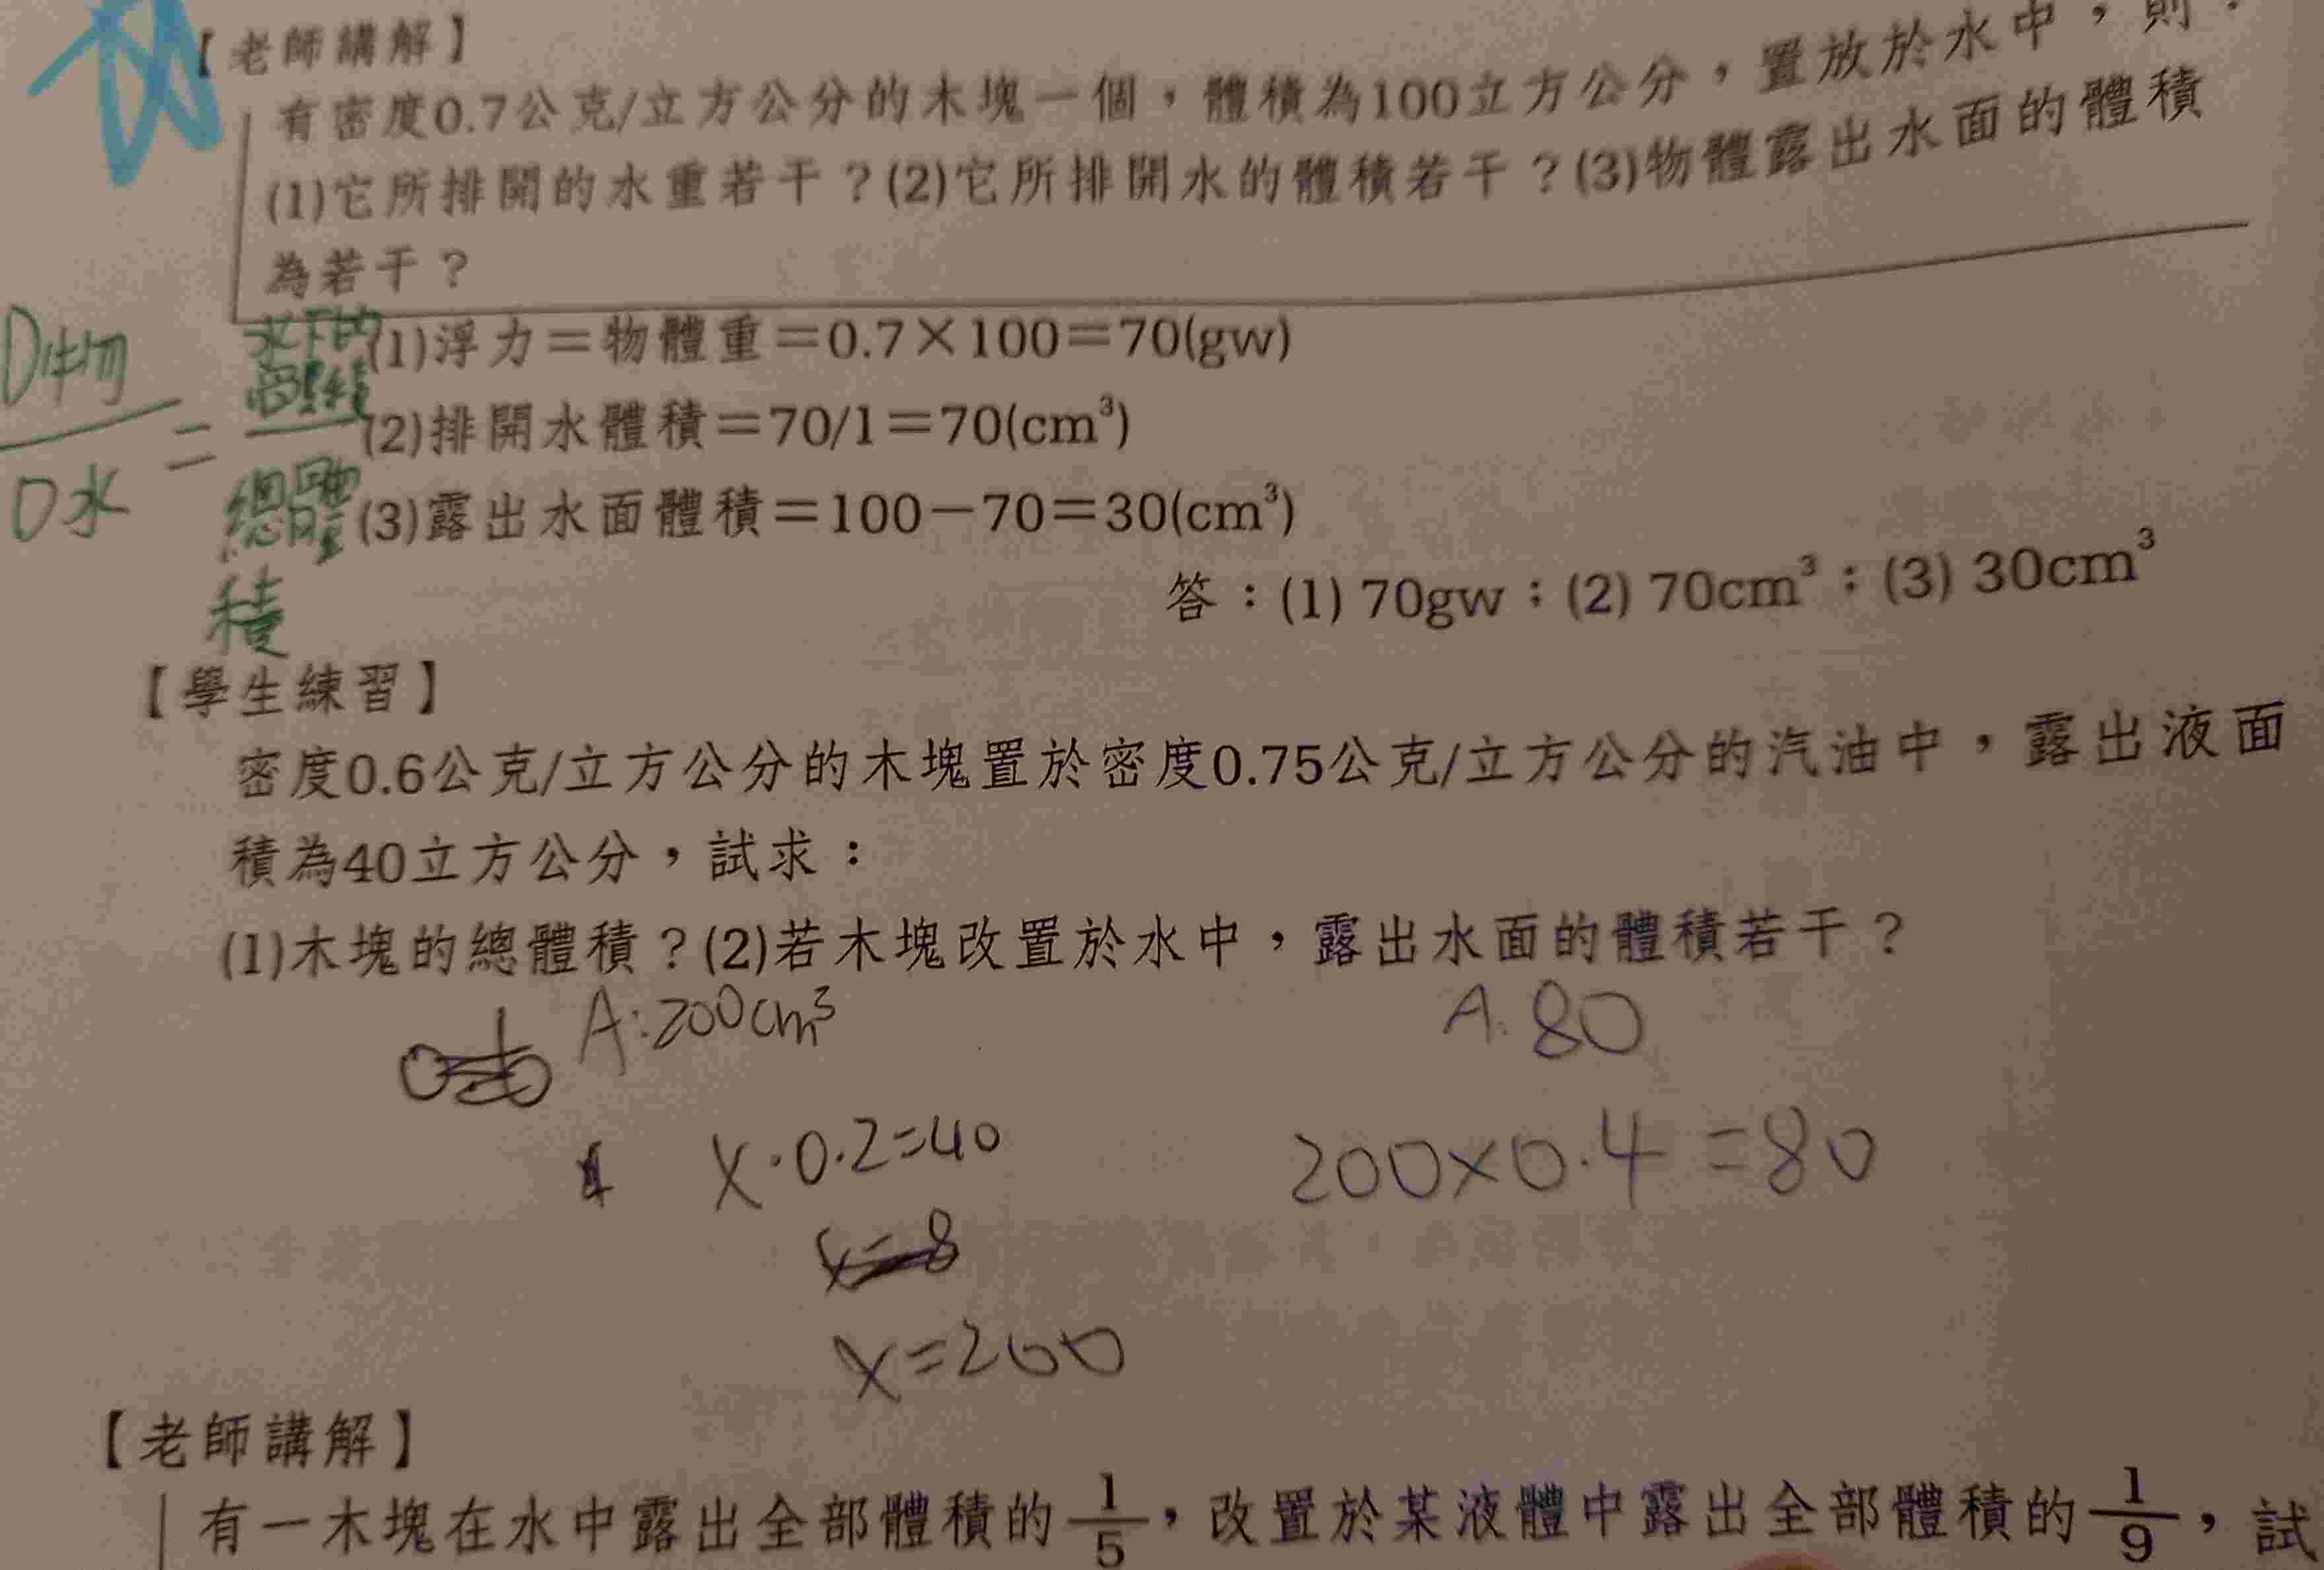 【老師講解】
有密度0.7公克/立方公分的木塊一個，體積為100立方公分，置放於水中，則：
(1)它所排開的水重若干？(2)它所排開水的體積若干？(3)物體露出水面的體積
為若干？
(1)浮力＝物體重＝0.7×100＝70(gw)
(2)排開水體積＝70/1＝70(cm³)
(3)露出水面體積＝100－70＝30(cm³)
答：(1) 70gw；(2) 70cm³；(3) 30cm³
D物/D水 = 水下的體積/總體積
【學生練習】
密度0.6公克/立方公分的木塊置於密度0.75公克/立方公分的汽油中，露出液面
積為40立方公分，試求：
(1)木塊的總體積？(2)若木塊改置於水中，露出水面的體積若干？
A:200cm³
A:80
X·0.2=40
200×0.4=80
x=8
X=200
【老師講解】
有一木塊在水中露出全部體積的1/5，改置於某液體中露出全部體積的1/9，試